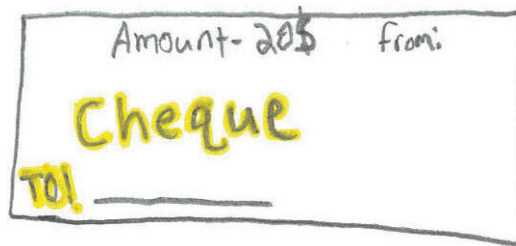 Amount- 20$ from:
Cheque
TO!